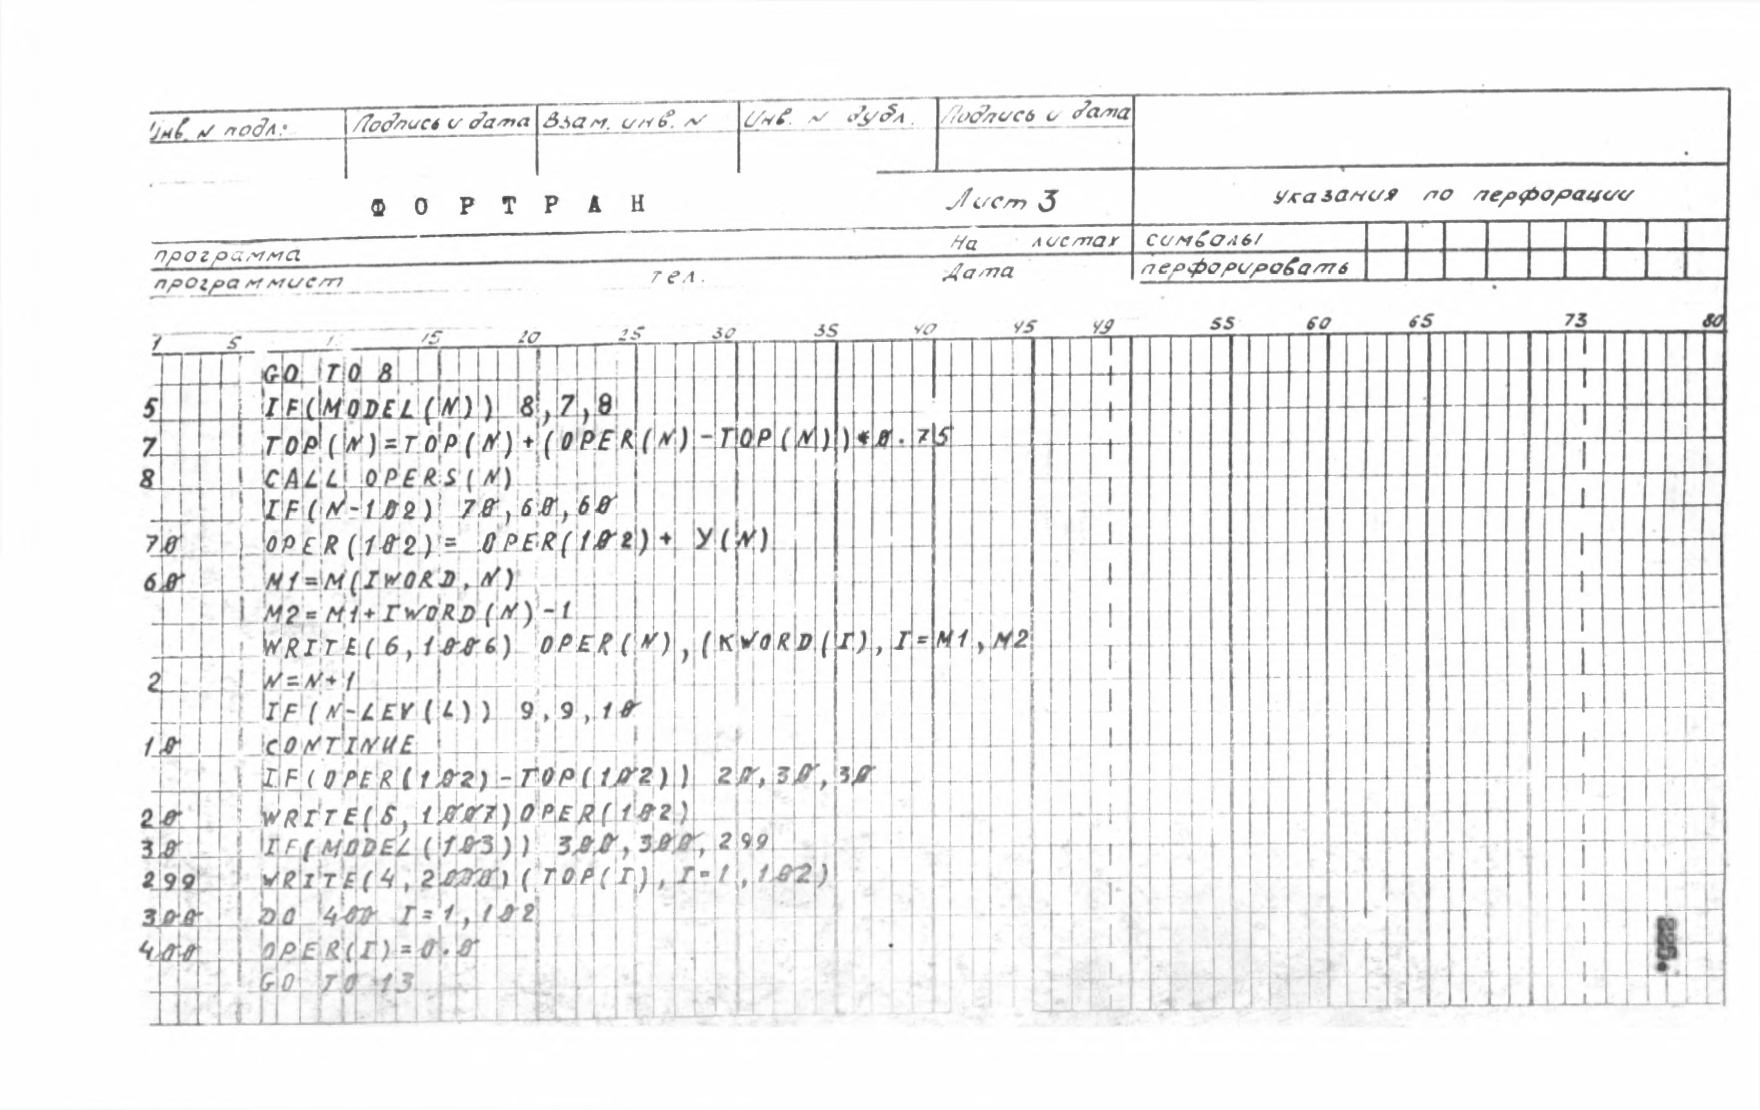 Инв. N подл. Подпись и дата Взам. инв. N Инв. N дубл. Подпись и дата
ФОРТРАН Лист 3 указания по перфорации
программа На листах символы
программист тел. Дата перфорировать
1 5 1 15 20 25 30 35 40 45 49 55 60 65 73 80
GO TO 8
5 IF(MODEL(N)) 8,7,8
7 TOP(N)=TOP(N)+(OPER(N)-TOP(N))*0.75
8 CALL OPERS(N)
IF(N-102) 70,60,60
70 OPER(102)= OPER(102)+ Y(N)
60 M1=M(IWORD,N)
M2=M1+IWORD(N)-1
WRITE(6,1006) OPER(N),(KWORD(I),I=M1,M2
2 N=N+1
IF(N-LEV(L)) 9,9,10
10 CONTINUE
IF(OPER(102)-TOP(102)) 20,30,30
20 WRITE(6,1007)OPER(102)
30 IF(MODEL(103)) 300,300,299
299 WRITE(4,2000)(TOP(I),I=1,102)
300 DO 400 I=1,102
400 OPER(I)=0.0
GO TO 13